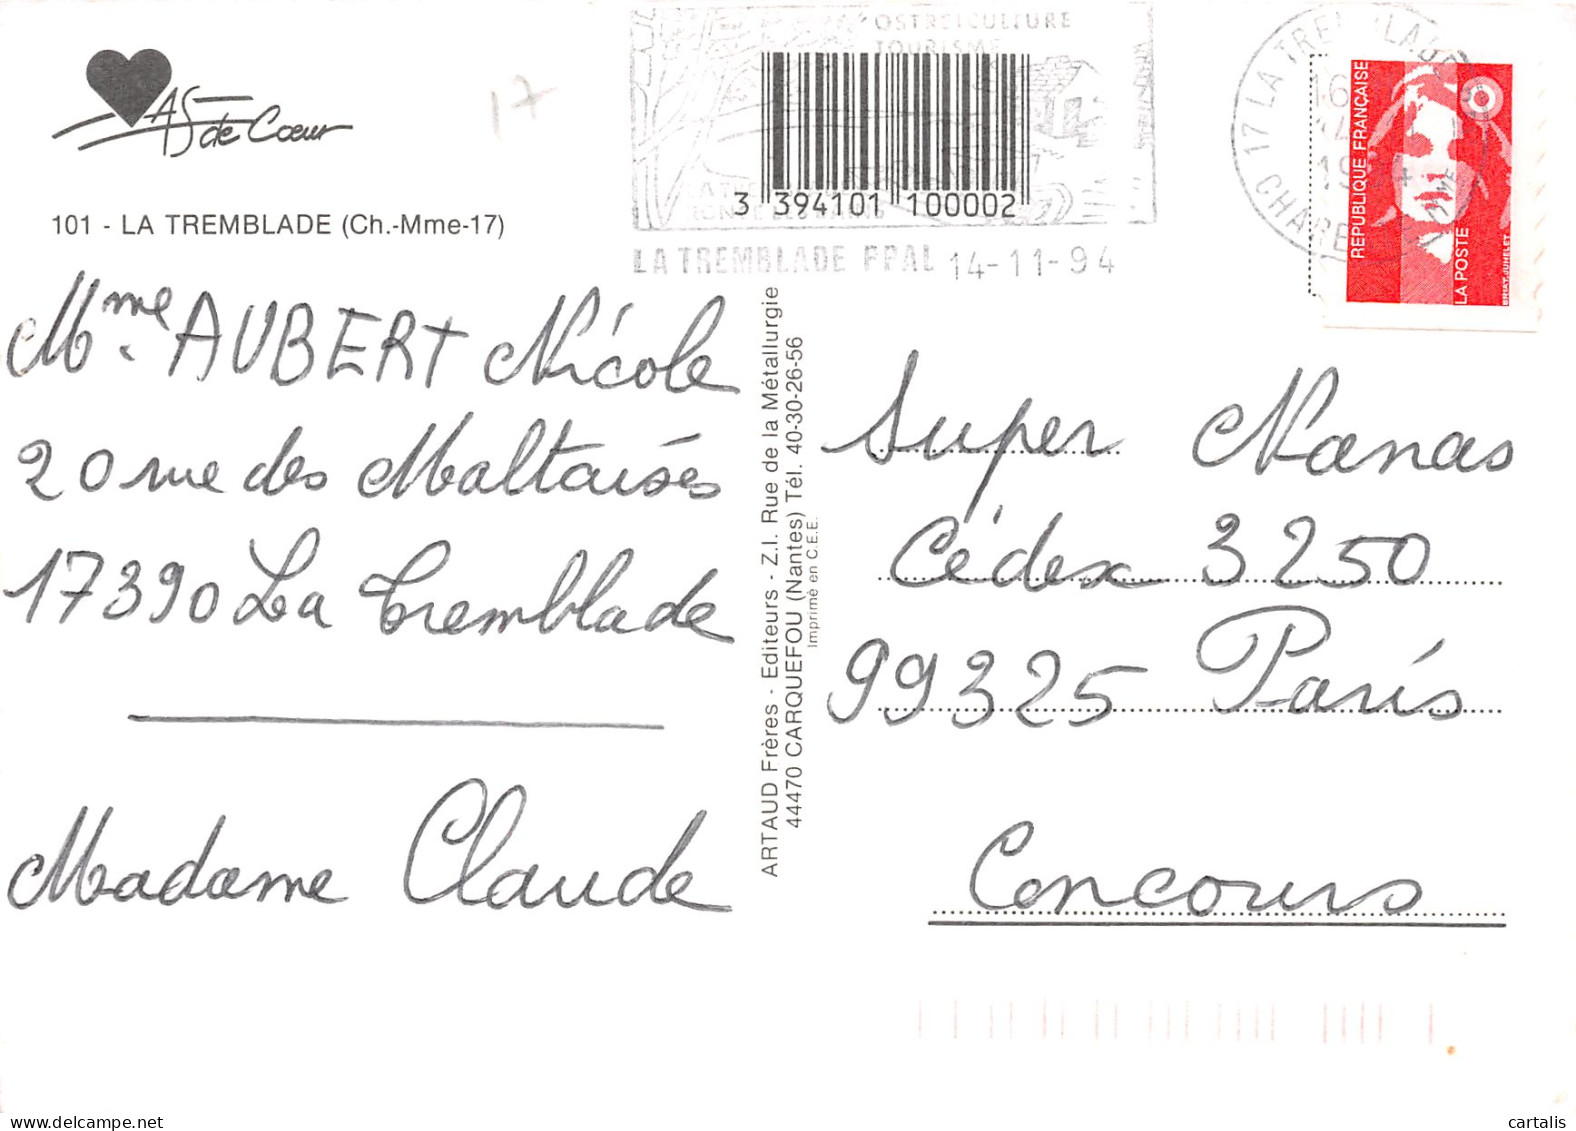 AS de Cœur
17
101 - LA TREMBLADE (Ch.-Mme-17)
OSTREICULTURE
TOURISME
3 394101 100002
LA TREMBLADE PPAL 14-11-94
17 LA TREMBLADE
REPUBLIQUE FRANÇAISE
LA POSTE
BRIAT-JUMELET
Mme. AUBERT Nicole
20 rue des Maltaisés
17390 La Tremblade
Madame Claude
ARTAUD Frères - Editeurs - Z.I. Rue de la Métallurgie
44470 CARQUEFOU (Nantes) Tél. 40-30-26-56
Imprimé en C.E.E.
Super Nanas
Cédex 3250
99325 Paris
Concours
cartalis